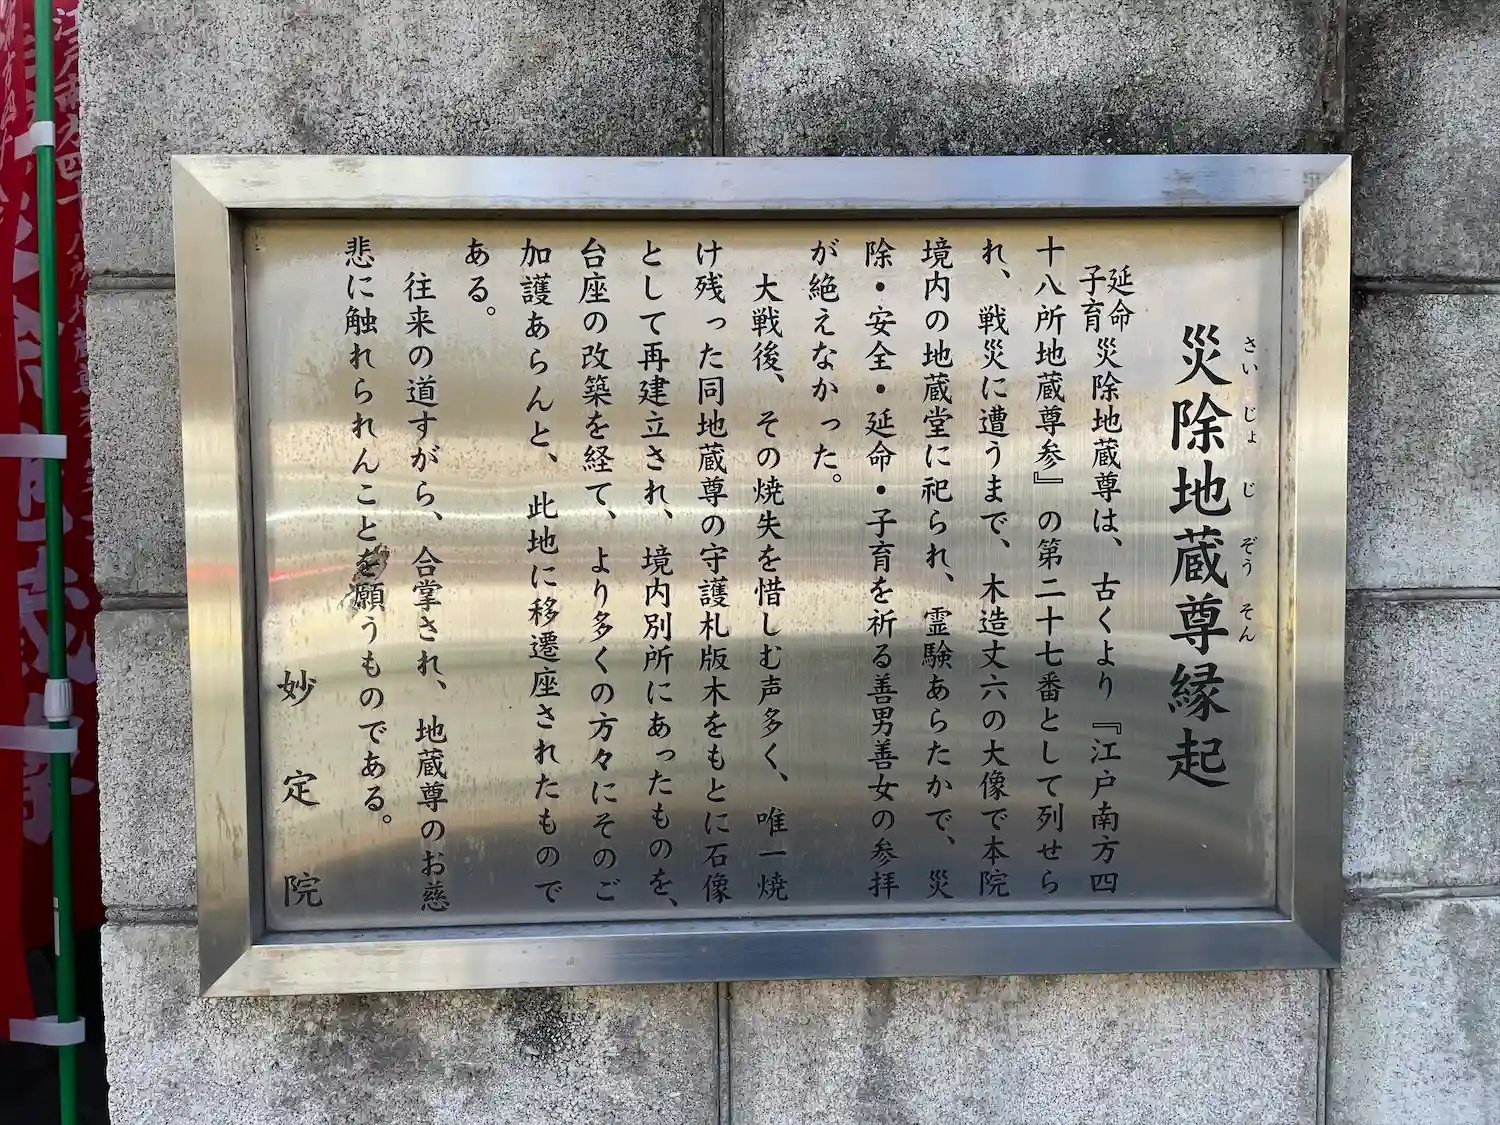 災除地蔵尊縁起
さいじょじぞうそん
延命
子育
災除地蔵尊は、古くより『江戸南方四
十八所地蔵尊参』の第二十七番として列せら
れ、戦災に遭うまで、木造丈六の大像で本院
境内の地蔵堂に祀られ、霊験あらたかで、災
除・安全・延命・子育を祈る善男善女の参拝
が絶えなかった。
大戦後、その焼失を惜しむ声多く、唯一焼
け残った同地蔵尊の守護札版木をもとに石像
として再建立され、境内別所にあったものを、
台座の改築を経て、より多くの方々にそのご
加護あらんと、此地に移遷座されたもので
ある。
往来の道すがら、合掌され、地蔵尊のお慈
悲に触れられんことを願うものである。
妙定院